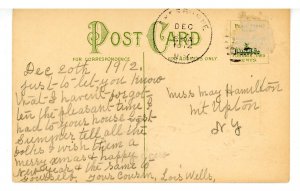 POST CARD
FOR CORRESPONDENCE
FOR ADDRESS ONLY
DEC
1912
Dec 20th 1912
just to let you know
that I haven't forgot
ten the pleasant time I
had to your house last
Summer tell all the
folks I wish them a
merry xmas & happy
New year & the same to
yourself. Your Cousin, Lois Wells,
Miss May Hamilton
Mt Upton
N Y